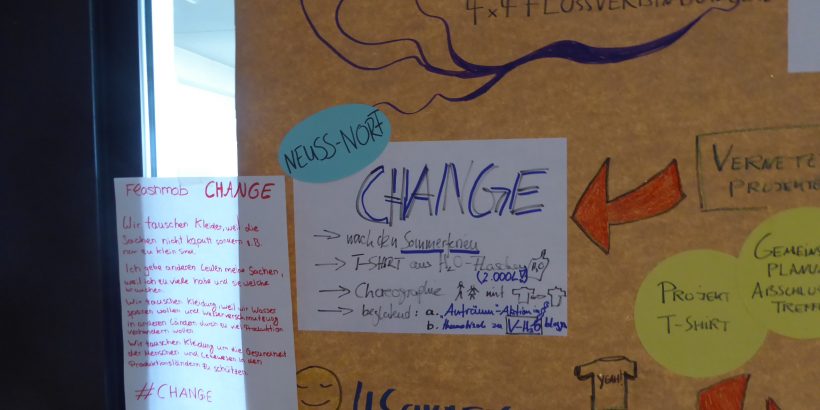 4x4 FLUSSVERBINDUNGEN
NEUSS-NORF
CHANGE
→ nach den Sommerferien
→ T-SHIRT aus H₂O-Flaschen H₂O
(2.000L)
→ Choreographie mit
→ begleitend: a. „Aufräum-Aktion"
b. thematisch zu V-H₂O
Flashmob CHANGE
Wir tauschen Kleider, weil die
Sachen nicht kaputt sondern z.B.
nur zu klein sind.
Ich gebe anderen Leuten meine Sachen,
weil ich zu viele habe und sie welche
brauchen.
Wir tauschen Kleidung, weil wir Wasser
sparen wollen und Wasserverschmutzung
in anderen Länder durch zu viel Produktion
verhindern wollen.
Wir tauschen Kleidung um die Gesundheit
der Menschen und Lebewesen in den
Produktionsländern zu schützen.
#CHANGE
VERNETZ
PROJEKTE
GEMEINS
PLANU
ABSCHLU
TREFF
PROJEKT
T-SHIRT
YEAH!